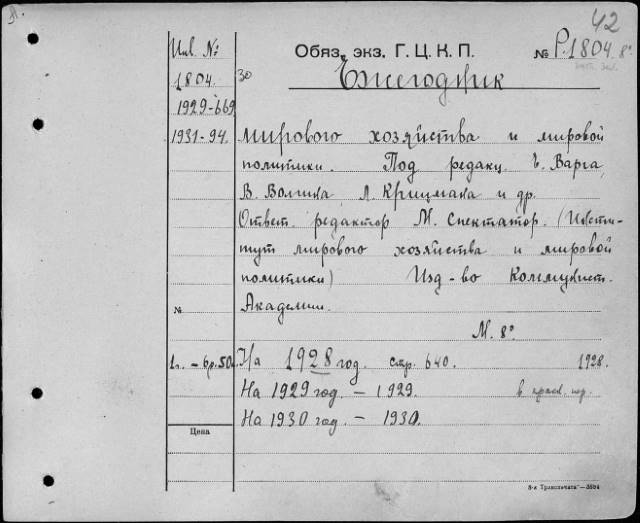 42
Инв. №
Обяз. экз. Г. Ц. К. П.
№ Р.1804 8°
1804
30
Ежегодник
1929-669
1931-94.
мирового хозяйства и мировой
политики. Под редакц. Е. Варга,
В. Волгина, Л. Крицмана и др.
Ответ. редактор М. Спектатор. (Инсти-
тут мирового хозяйства и мировой
политики) Изд-во Коммунист.
№
Академии.
М. 8°
1г. - 6р.50к
На 1928 год. стр. 640. 1928.
На 1929 год. - 1929.
На 1930 год. - 1930.
Цена
3-я Транспечать — 3584